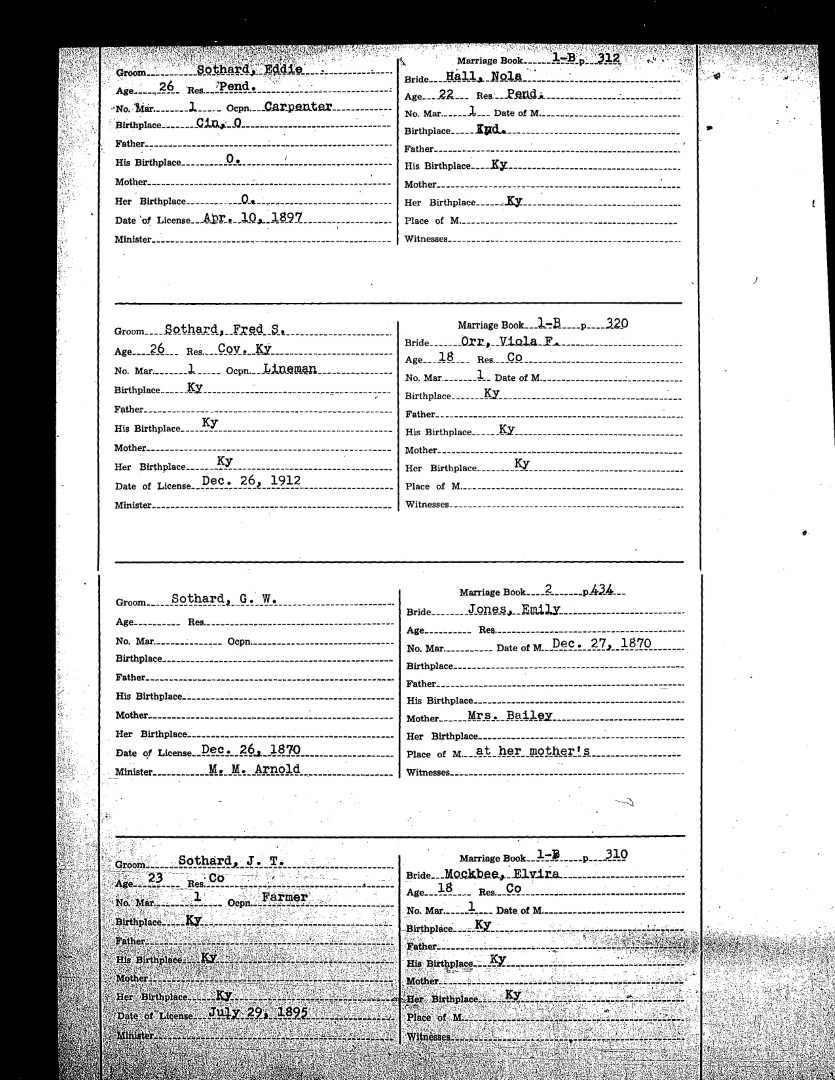 Groom Sothard, Eddie
Age 26 Res Pend.
No. Mar. 1 Ocpn. Carpenter
Birthplace Cin, O
Father
His Birthplace O.
Mother
Her Birthplace O.
Date of License Apr. 10, 1897
Minister
Marriage Book 1-B p 312
Bride Hall, Nola
Age 22 Res Pend.
No. Mar. 1 Date of M.
Birthplace
Father
His Birthplace Ky
Mother
Her Birthplace Ky
Place of M.
Witnesses
Groom Sothard, Fred S.
Age 26 Res Cov. Ky
No. Mar. 1 Ocpn. Lineman
Birthplace Ky
Father
His Birthplace Ky
Mother
Her Birthplace Ky
Date of License Dec. 26, 1912
Minister
Marriage Book 1-B p 320
Bride Orr, Viola F.
Age 18 Res Co
No. Mar. 1 Date of M.
Birthplace Ky
Father
His Birthplace Ky
Mother
Her Birthplace Ky
Place of M.
Witnesses
Groom Sothard, G. W.
Age Res
No. Mar. Ocpn.
Birthplace
Father
His Birthplace
Mother
Her Birthplace
Date of License Dec. 26, 1870
Minister M. M. Arnold
Marriage Book 2 p 434
Bride Jones, Emily
Age Res
No. Mar. Date of M. Dec. 27, 1870
Birthplace
Father
His Birthplace
Mother Mrs. Bailey
Her Birthplace
Place of M. at her mother's
Witnesses
Groom Sothard, J. T.
Age 23 Res Co
No. Mar. 1 Ocpn. Farmer
Birthplace Ky
Father
His Birthplace Ky
Mother
Her Birthplace Ky
Date of License July 29, 1895
Minister
Marriage Book 1-B p 310
Bride Mockbee, Elvira
Age 18 Res Co
No. Mar. 1 Date of M.
Birthplace Ky
Father
His Birthplace Ky
Mother
Her Birthplace Ky
Place of M.
Witnesses